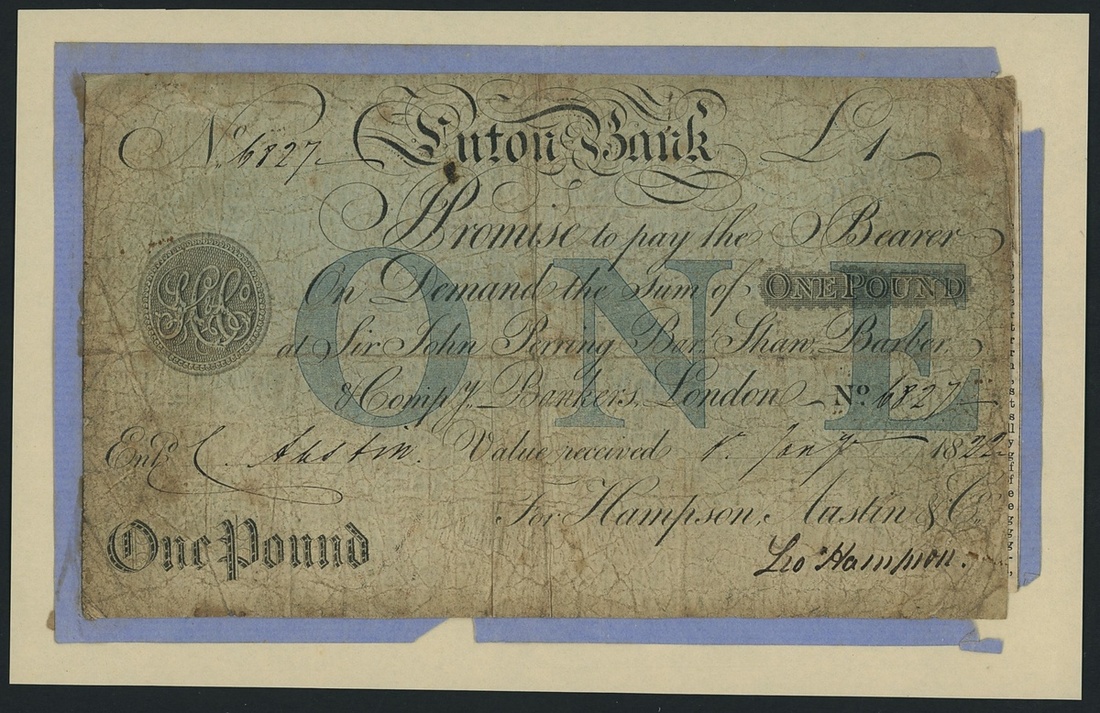 No. 6827 Luton Bank £1
I Promise to pay the Bearer
On Demand the Sum of ONE POUND
at Sir John Perring Bart. Shaw, Barber,
& Compy. Bankers, London No. 6827
ONE
Entd. C. Austin. Value received Jany 1822
For Hampson, Austin & Co.
One Pound
Leo Hampson.